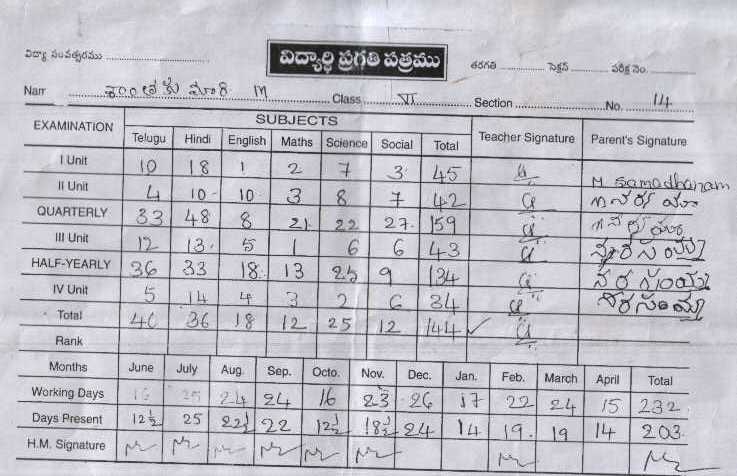 విద్యా సంవత్సరము విద్యార్థి ప్రగతి పత్రము తరగతి సెక్షన్ పరీక్ష నెం.
Nam శాంతి కుమారి M Class VI Section No. 14
EXAMINATION SUBJECTS Teacher Signature Parent's Signature
Telugu Hindi English Maths Science Social Total
I Unit 10 18 1 2 7 3 45 M Samadhanam
II Unit 4 10 10 3 8 7 42
QUARTERLY 33 48 8 21 22 27 159
III Unit 12 13 5 1 6 6 43
HALF-YEARLY 36 33 18 13 25 9 134
IV Unit 5 14 4 3 2 6 34
Total 40 36 18 12 25 12 144 ✓
Rank
Months June July Aug. Sep. Octo. Nov. Dec. Jan. Feb. March April Total
Working Days 16 25 24 24 16 23 26 17 22 24 15 232
Days Present 12½ 25 22½ 22 12½ 18½ 24 14 19 19 14 203
H.M. Signature